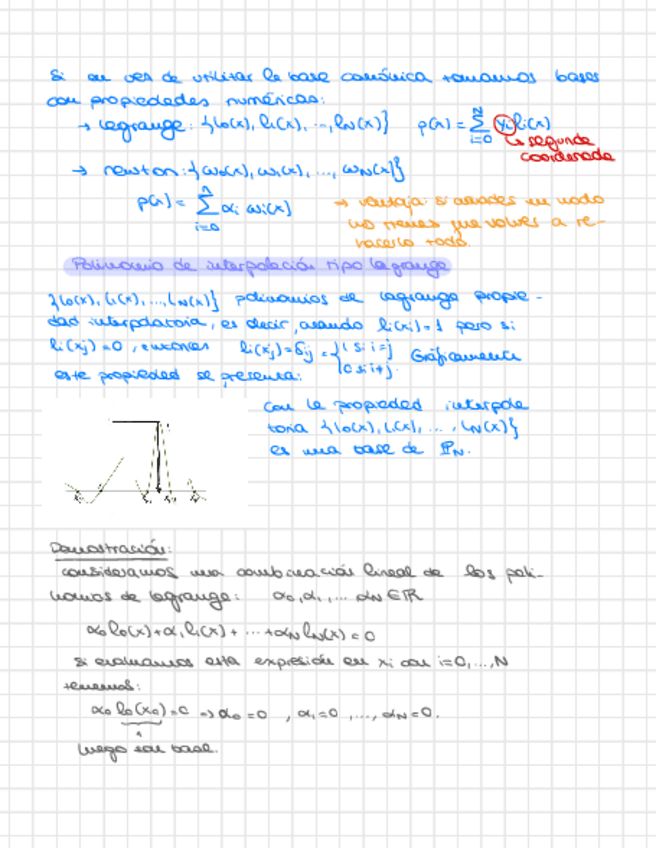 Si en vez de utilizar la base canónica tomamos bases
con propiedades numéricas:
→ Lagrange: {l₀(x), l₁(x), ..., l_N(x)} p(x) = ∑_{i=0}^{N} y_i l_i(x)
↳ segunda
coordenada
→ newton: {ω₀(x), ω₁(x), ..., ω_N(x)}
p(x) = ∑_{i=0}^{N} α_i ω_i(x) → ventaja: si añades un nodo
no tienes que volver a re-
hacerlo todo.
Polinomio de interpolación tipo Lagrange
{l₀(x), l₁(x), ..., l_N(x)} polinomios de Lagrange propie-
dad interpolatoria, es decir, cuando l_i(x_i)=1 pero si
l_i(x_j)=0, entonces l_i(x_j)=δ_ij = {1 si i=j Gráficamente
0 si i≠j.
esta propiedad se presenta:
con la propiedad interpola
toria {l₀(x), l₁(x), ..., l_N(x)}
es una base de ℙ_N.
Demostración:
consideramos una combinación lineal de los poli-
nomios de Lagrange: α₀, α₁, ... α_N ∈ ℝ
α₀l₀(x)+α₁l₁(x)+ ... +α_N l_N(x) = 0
si evaluamos esta expresión en x_i con i=0,...,N
tenemos:
α₀ l₀(x₀) = 0 ⇒ α₀ = 0 , α₁=0 , ..., α_N=0.
1
luego son base.